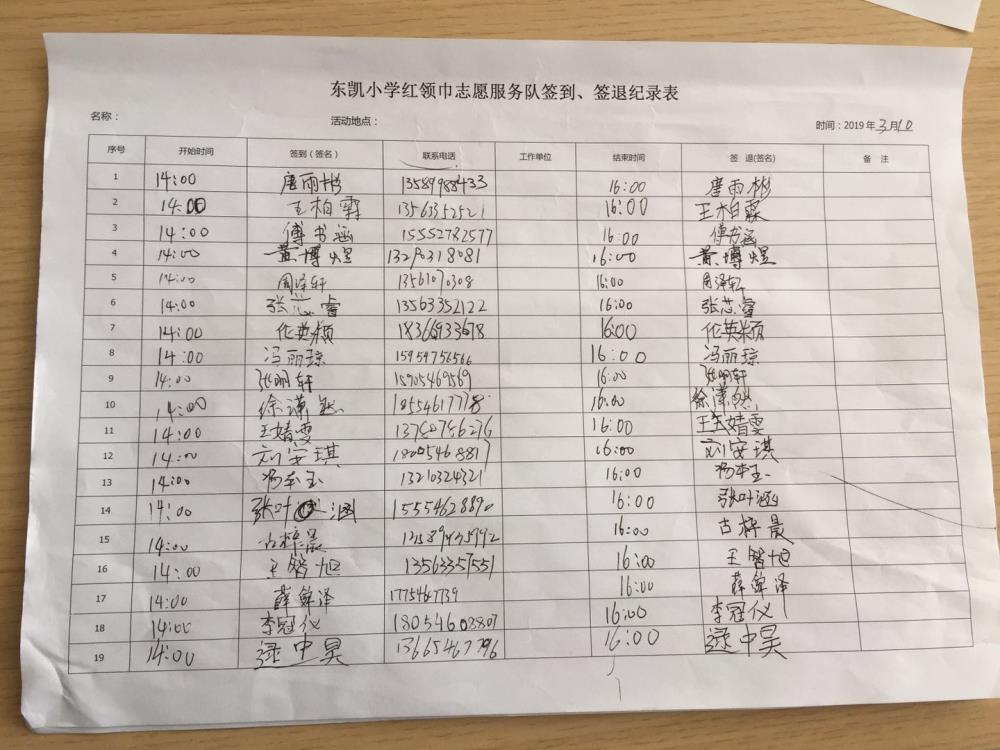 东凯小学红领巾志愿服务队签到、签退纪录表
名称： 活动地点： 时间：2019年3月10
序号 开始时间 签到（签名） 联系电话 工作单位 结束时间 签 退(签名) 备 注
1 14:00 唐雨彬 13589988433 16:00 唐雨彬
2 14:00 王柏霖 13563352521 16:00 王柏霖
3 14:00 傅书涵 15552782577 16:00 傅书涵
4 14:00 黄博煜 13290318081 16:00 黄博煜
5 14:00 周泽轩 13561070308 16:00 周泽轩
6 14:00 张芯睿 13563352122 16:00 张芯睿
7 14:00 16:00
8 14:00 冯丽琼 15954756566 16:00 冯丽琼
9 14:00 张明轩 15905469569 16:00 张明轩
10 14:00 徐潇然 18554617778 16:00 徐潇然
11 14:00 王婧雯 16:00 王婧雯
12 14:00 刘安琪 18005468817 16:00 刘安琪
13 14:00 13210324321 16:00
14 14:00 张叶涵 15554628890 16:00 张叶涵
15 14:00 古梓晨 16:00 古梓晨
16 14:00 王智旭 13563357551 16:00 王智旭
17 14:00 16:00
18 14:00 李冠仪 18054603807 16:00 李冠仪
19 14:00 逯中昊 13665467796 16:00 逯中昊